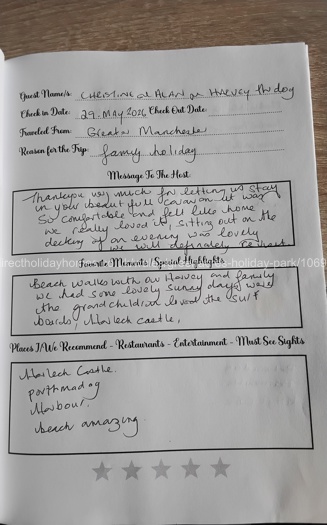 Guest Name/s: CHRISTINE or ALAN or HARVEY the dog
Check in Date: 29. MAY 2026 Check Out Date:
Traveled From: Greater Manchester
Reason for the Trip: family holiday
Message To The Host
Thankyou very much for letting us stay
in your beautifull caravan it was
so comfortable and felt like home
we really loved it, sitting out on the
decking of an evening was lovely
we will definately be back
directholidayhomes a-holiday-park/1069
Favorite Moments/Special Highlights
Beach walks with our Harvey and family
we had some lovely sunny days
the grandchildren loved the surf
boards, Harlech castle,
Places I/We Recommend - Restaurants - Entertainment - Must See Sights
Harlech Castle.
porthmadog
Harbour.
beach amazing.